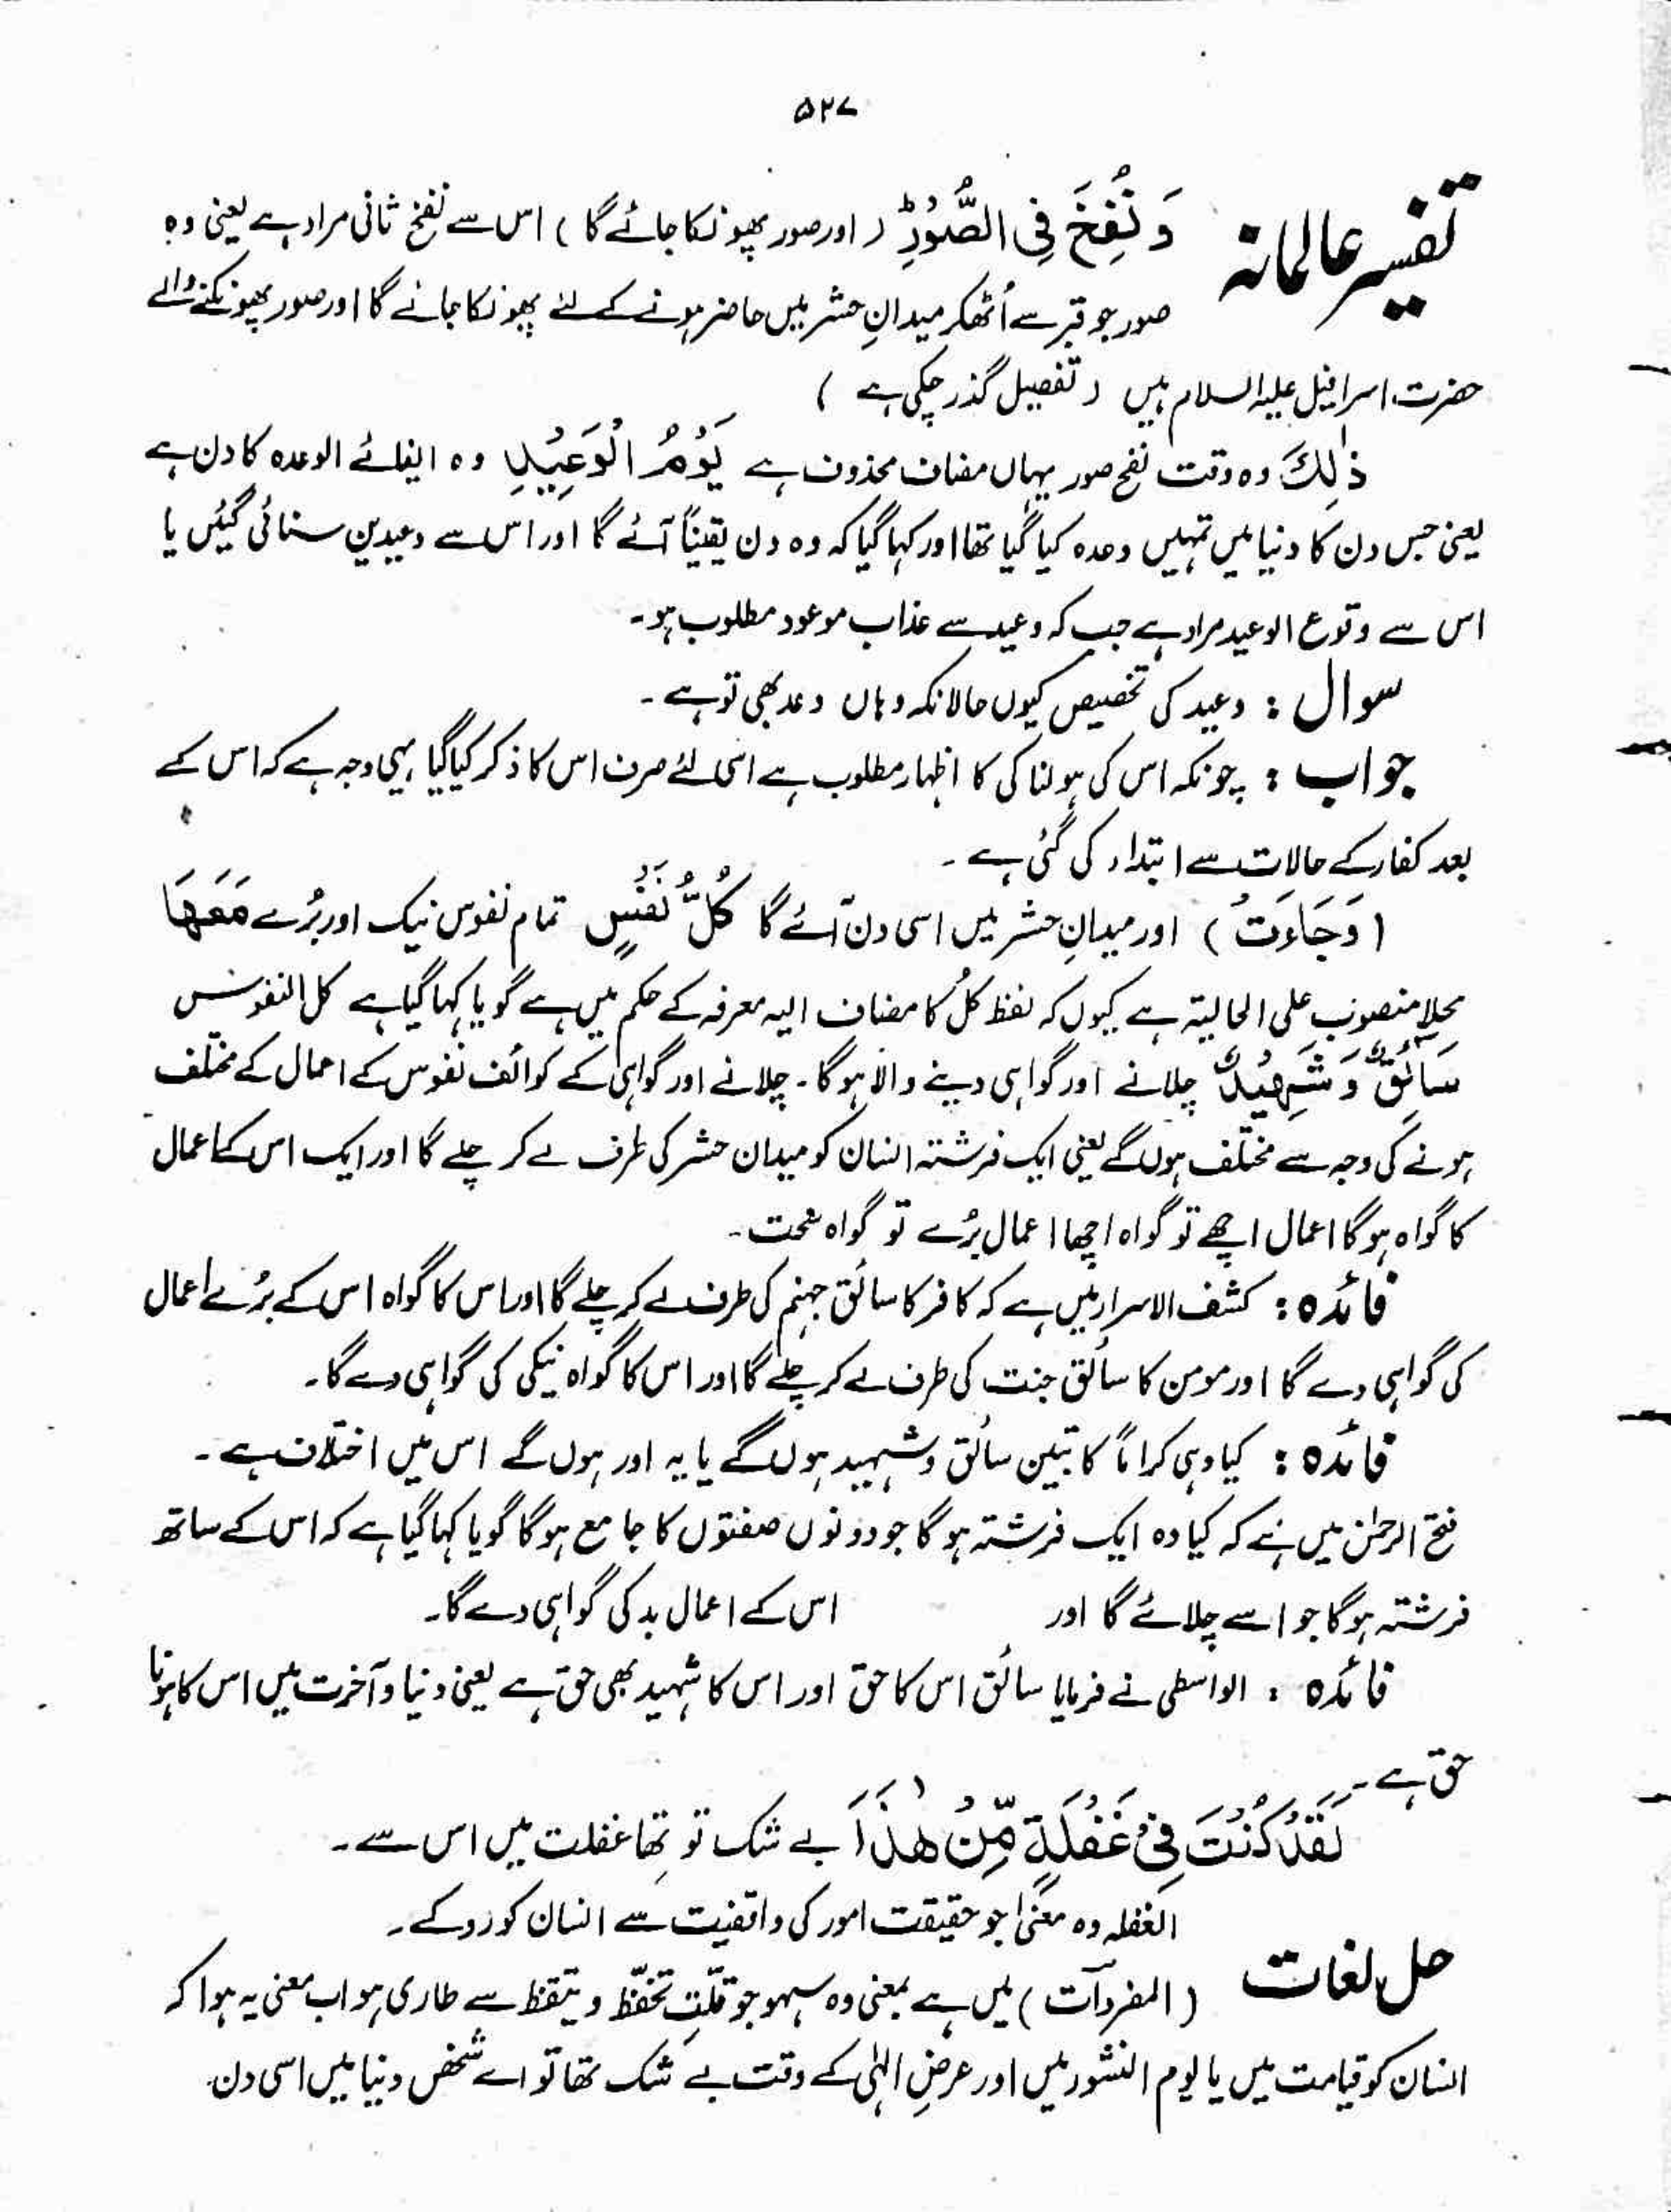 ۵۲۷
تفسیر عالمانہ
وَنُفِخَ فِی الصُّوْرِؕ ( اور صور پھونکا جائے گا ) اس سے نفخ ثانی مراد ہے یعنی وہ
صور جو قبر سے اُٹھکر میدانِ حشر میں حاضر ہونے کے لئے پھونکا جائے گا اور صور پھونکنے والے
حضرت اسرافیل علیہ السلام ہیں ( تفصیل گذر چکی ہے )
ذٰلِکَ وہ وقت نفخ صور یہاں مضاف محذوف ہے یَوْمُ الْوَعِیْدِ وہ ایفائے الوعدہ کا دن ہے
یعنی جس دن کا دنیا میں تمہیں وعدہ کیا گیا تھا اور کہا گیا کہ وہ دن یقیناً آئے گا اور اس سے وعیدین سنائی گئیں یا
اس سے وقوع الوعید مراد ہے جب کہ وعید سے عذاب موعود مطلوب ہو۔
سوال : وعید کی تخصیص کیوں حالانکہ وہاں وعد بھی تو ہے ۔
جواب : چونکہ اس کی ہولناکی کا اظہار مطلوب ہے اسی لئے صرف اس کا ذکر کیا گیا یہی وجہ ہے کہ اس کے
بعد کفار کے حالات سے ابتداء کی گئی ہے ۔
( وَجَاءَتْ ) اور میدانِ حشر میں اسی دن آئے گا کُلُّ نَفْسٍ تمام نفوس نیک اور بُرے مَعَهَا
محلا منصوب علی الحالیۃ ہے کیوں کہ لفظ کُل کا مضاف الیہ معرفہ کے حکم میں ہے گویا کہا گیا ہے کل النفوس
سَائِقٌ وَشَهِیْدٌ چلانے اور گواہی دینے والا ہوگا ۔ چلانے اور گواہی کے کوائف نفوس کے اعمال کے مختلف
ہونے کی وجہ سے مختلف ہوں گے یعنی ایک فرشتہ انسان کو میدان حشر کی طرف لے کر چلے گا اور ایک اس کے اعمال
کا گواہ ہوگا اعمال اچھے تو گواہ اچھا اعمال بُرے تو گواہ سخت ۔
فائدہ : کشف الاسرار میں ہے کہ کافر کا سائق جہنم کی طرف لے کر چلے گا اور اس کا گواہ اس کے بُرے اعمال
کی گواہی دے گا اور مومن کا سائق جنت کی طرف لے کر چلے گا اور اس کا گواہ نیکی کی گواہی دے گا ۔
فائدہ : کیا وہی کراماً کاتبین سائق و شہید ہوں گے یا یہ اور ہوں گے اس میں اختلاف ہے ۔
فتح الرحمٰن میں ہے کہ کیا وہ ایک فرشتہ ہوگا جو دونوں صفتوں کا جامع ہوگا گویا کہا گیا ہے کہ اس کے ساتھ
فرشتہ ہوگا جو اسے چلائے گا اور اس کے اعمال بد کی گواہی دے گا ۔
فائدہ : الواسطی نے فرمایا سائق اس کا حق اور اس کا شہید بھی حق ہے یعنی دنیا و آخرت میں اس کا ہونا
حق ہے ۔
لَقَدْ کُنْتَ فِیْ غَفْلَةٍ مِّنْ هٰذَا بے شک تو تھا غفلت میں اس سے ۔
حل لغات
الغفلہ وہ معنیٰ جو حقیقت امور کی واقفیت سے انسان کو روکے ۔
( المفردات ) میں ہے بمعنی وہ سہو جو قلّتِ تحفّظ و تیقظ سے طاری ہو اب معنی یہ ہوا کہ
انسان کو قیامت میں یا یوم النشور میں اور عرضِ الٰہی کے وقت بے شک تھا تو اے شخص دنیا میں اسی دن